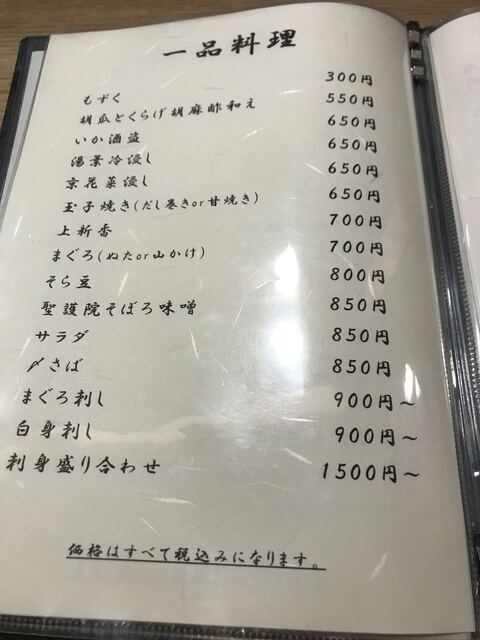 一品料理
もずく 300円
胡瓜とくらげ胡麻酢和え 550円
いか酒盗 650円
湯葉冷浸し 650円
京花菜浸し 650円
玉子焼き(だし巻きor甘焼き) 650円
上新香 700円
まぐろ(ぬたor山かけ) 700円
そら豆 800円
聖護院そぼろ味噌 850円
サラダ 850円
〆さば 850円
まぐろ刺し 900円～
白身刺し 900円～
刺身盛り合わせ 1500円～
価格はすべて税込みになります。